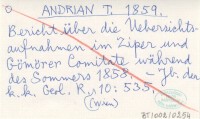 ANDRIAN T. 1859.
Bericht über die Uebersichts-
aufnahmen im Zipser und
Gömörer Comitate während
des Sommers 1858. – Jb. der
k. k. Geol. R. 10: 535.
(Wien)
BS1002/0254